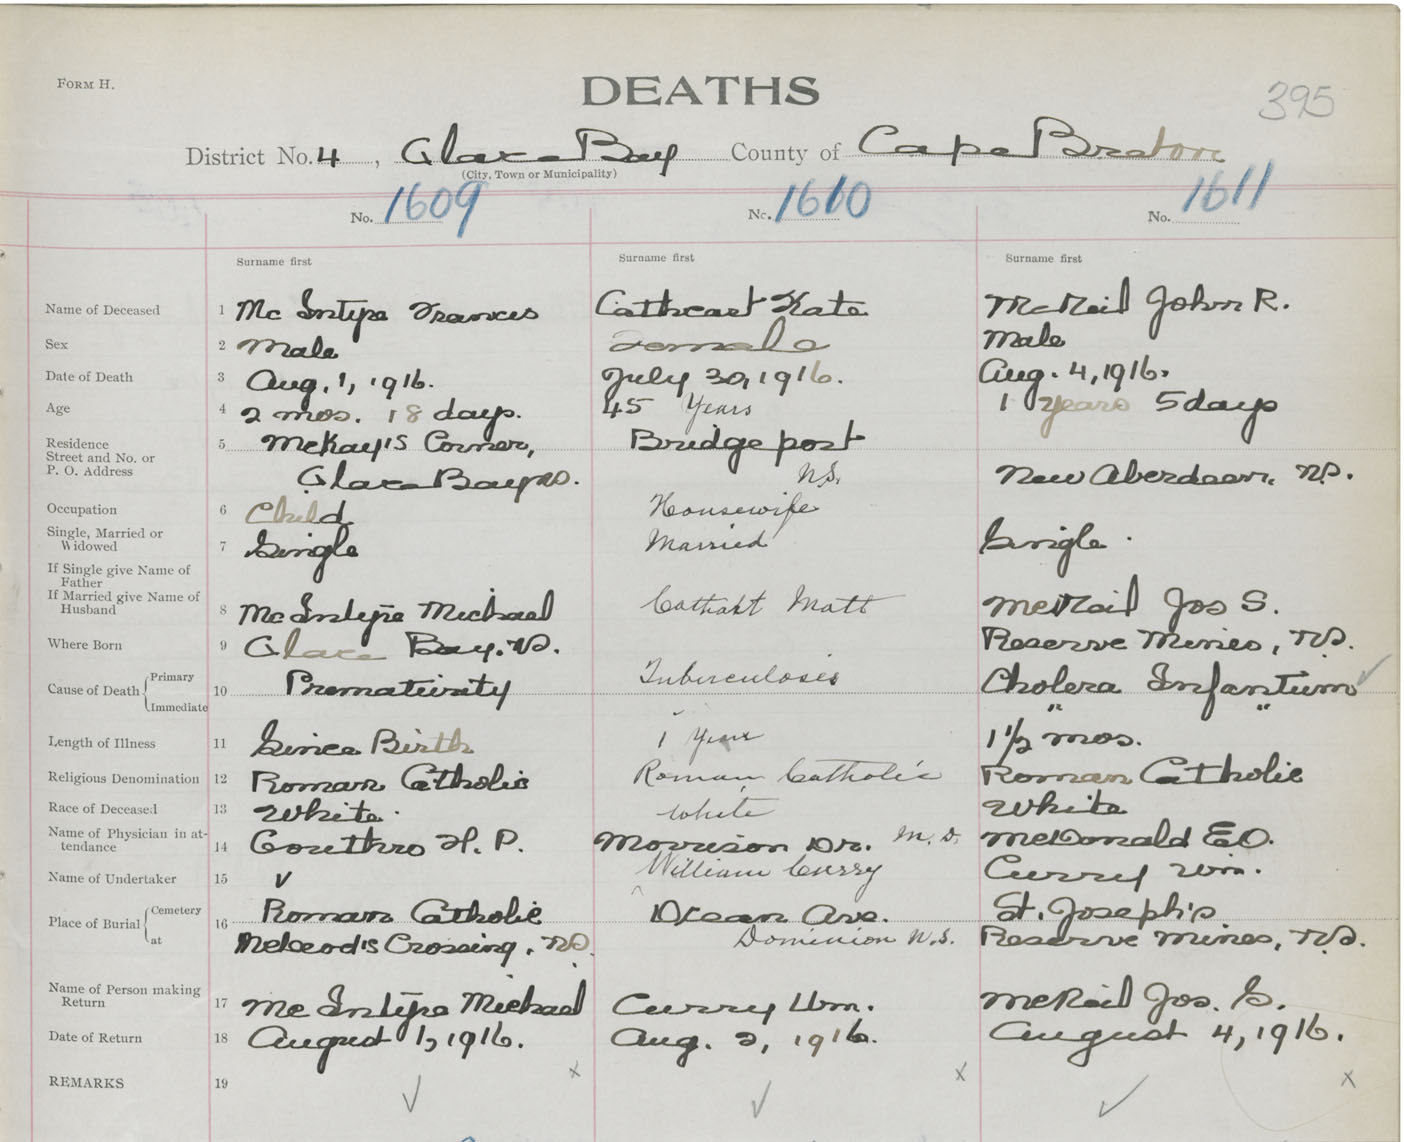 FORM H.
DEATHS
395
District No. 4, Glace Bay County of Cape Breton
(City, Town or Municipality)
No. 1609 No. 1610 No. 1611
Surname first Surname first Surname first
Name of Deceased 1 Mc Intyre Frances Cathcart Kate McNeil John R.
Sex 2 Male Female Male
Date of Death 3 Aug. 1, 1916. July 30, 1916. Aug. 4, 1916.
Age 4 2 mos. 18 days. 45 Years 1 years 5 days
Residence 5 McKay's Corner, Bridgeport
Street and No. or
P. O. Address Glace Bay NS. N.S. New Aberdeen, N.S.
Occupation 6 Child Housewife
Single, Married or
Widowed 7 Single Married Single.
If Single give Name of
Father
If Married give Name of
Husband 8 Mc Intyre Michael Cathart Matt McNeil Jos S.
Where Born 9 Glace Bay. NS. Reserve Mines, N.S.
Cause of Death Primary
10 Prematurity Tuberculosis Cholera Infantum
Immediate " "
Length of Illness 11 Since Birth 1 Year 1 1/2 mos.
Religious Denomination 12 Roman Catholic Roman Catholic Roman Catholic
Race of Deceased 13 White. White White
Name of Physician in at-
tendance 14 Gouthro H. P. Morrison Dr. M.D. McDonald EO.
Name of Undertaker 15 William Curry Curry Wm.
Place of Burial Cemetery 16 Roman Catholic Ocean Ave. St. Joseph's
at McLeod's Crossing, NS. Dominion N.S. Reserve Mines, N.S.
Name of Person making
Return 17 Mc Intyre Michael Curry Wm. McNeil Jos. S.
Date of Return 18 August 1, 1916. Aug. 2, 1916. August 4, 1916.
REMARKS 19 x x x